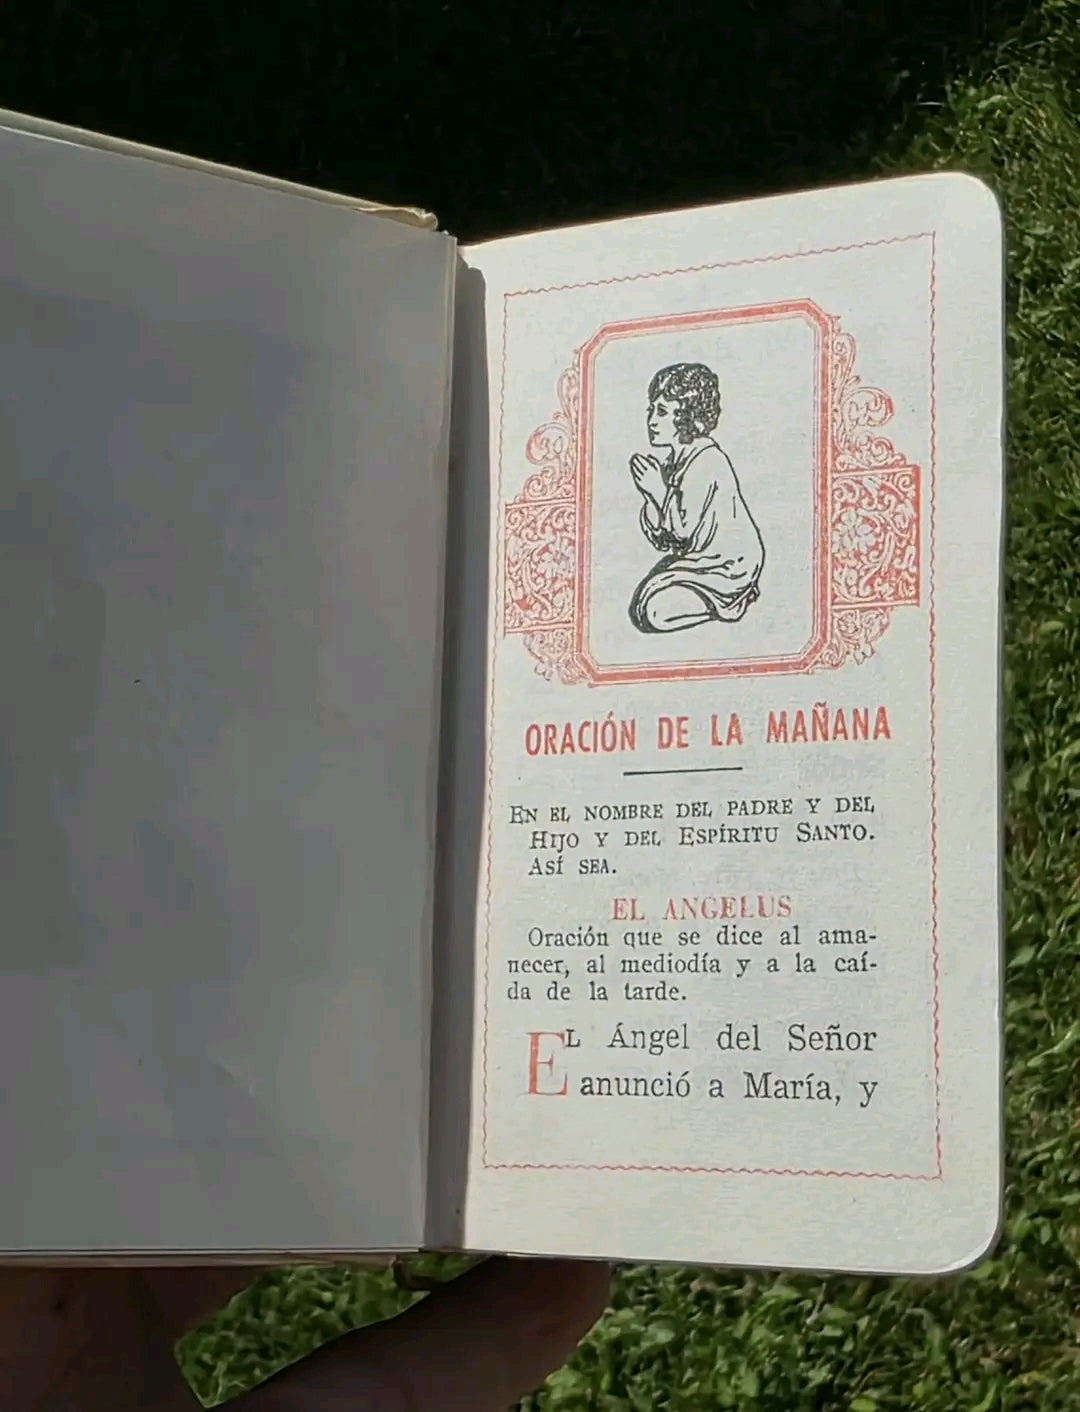 ORACIÓN DE LA MAÑANA
EN EL NOMBRE DEL PADRE Y DEL
HIJO Y DEL ESPÍRITU SANTO.
ASÍ SEA.
EL ANGELUS
Oración que se dice al ama-
necer, al mediodía y a la caí-
da de la tarde.
EL Ángel del Señor
anunció a María, y